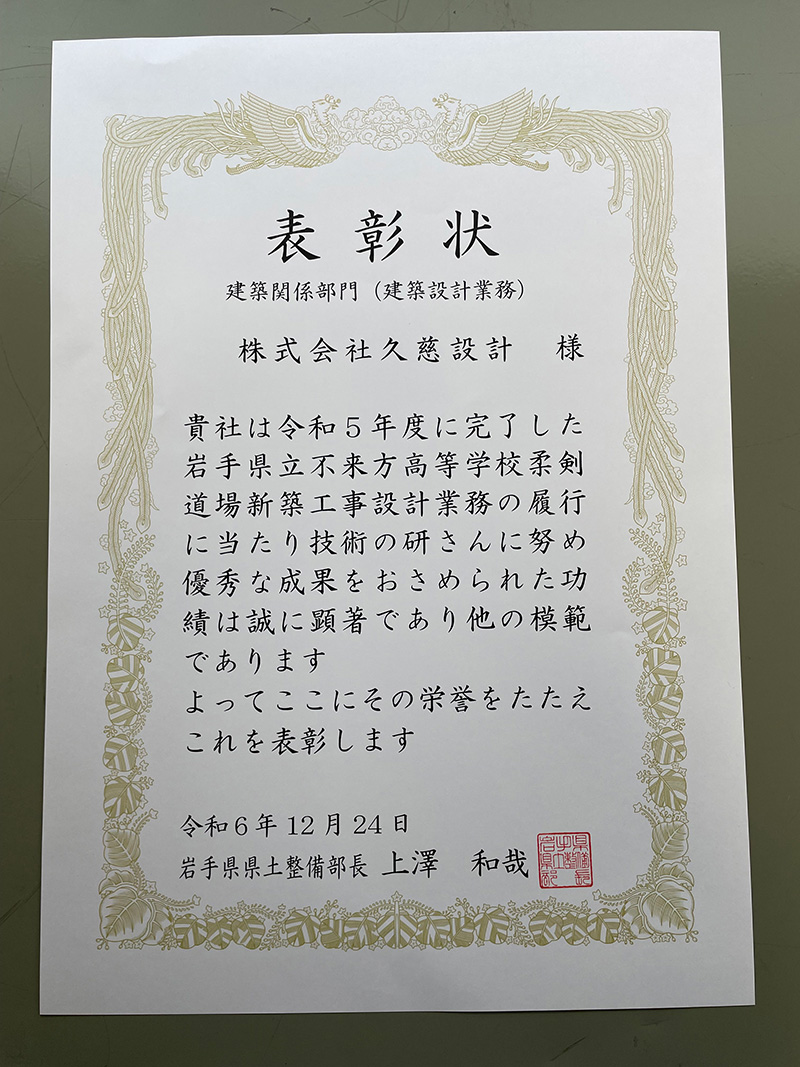 表彰状
建築関係部門（建築設計業務）
株式会社久慈設計　様
貴社は令和５年度に完了した
岩手県立不来方高等学校柔剣
道場新築工事設計業務の履行
に当たり技術の研さんに努め
優秀な成果をおさめられた功
績は誠に顕著であり他の模範
であります
よってここにその栄誉をたたえ
これを表彰します
令和６年 12 月 24 日
岩手県県土整備部長 上澤　和哉